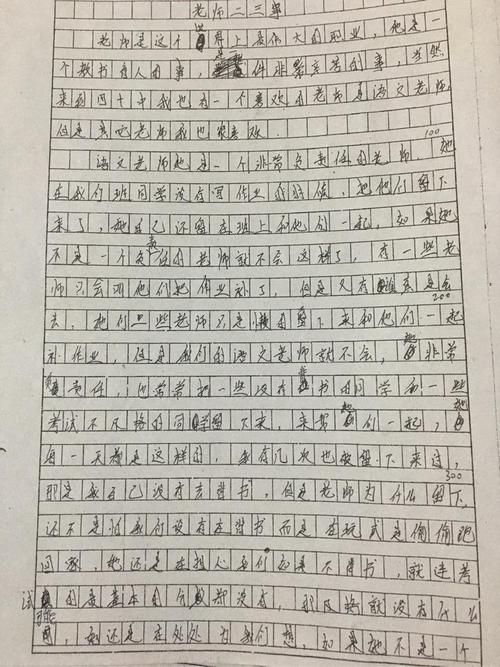 老师二三事
老师是这个世界上最伟大的职业，他是一
个教书育人的事，一件非常辛苦的事，当然
来到四十中我也有一个喜欢的老师是语文老师，
但是其他老师我也很喜欢.
100
语文老师她是一个非常负责任的老师.她
在我们班同学没有写作业的时候，把他们留下
来了，她自己还留在班上和他们一起，如果她
不是一个负责任的老师就不会这样了，有一些老
师只会叫他们把作业补了，但是又有谁真是会
200
去，他们一些老师只是留下来和他们一起
补作业，但是我们的语文老师就不会，她非常
负责任，也常常把一些没有背书的同学和一些
考试不及格的同学留下来，来帮他们一起，她
每一天都是这样的，我有几次也被留下来过，
300
那是我自己没有去背书，但是老师为什么留下，
还不是怕我们没有在背书而是在玩或是偷偷跑
回家，她还是在担心我们如是不背书，就连考
试的最基本的分数都没有，那及格就没有什么
可能，她还是在处处为我们想，如果她不是一个